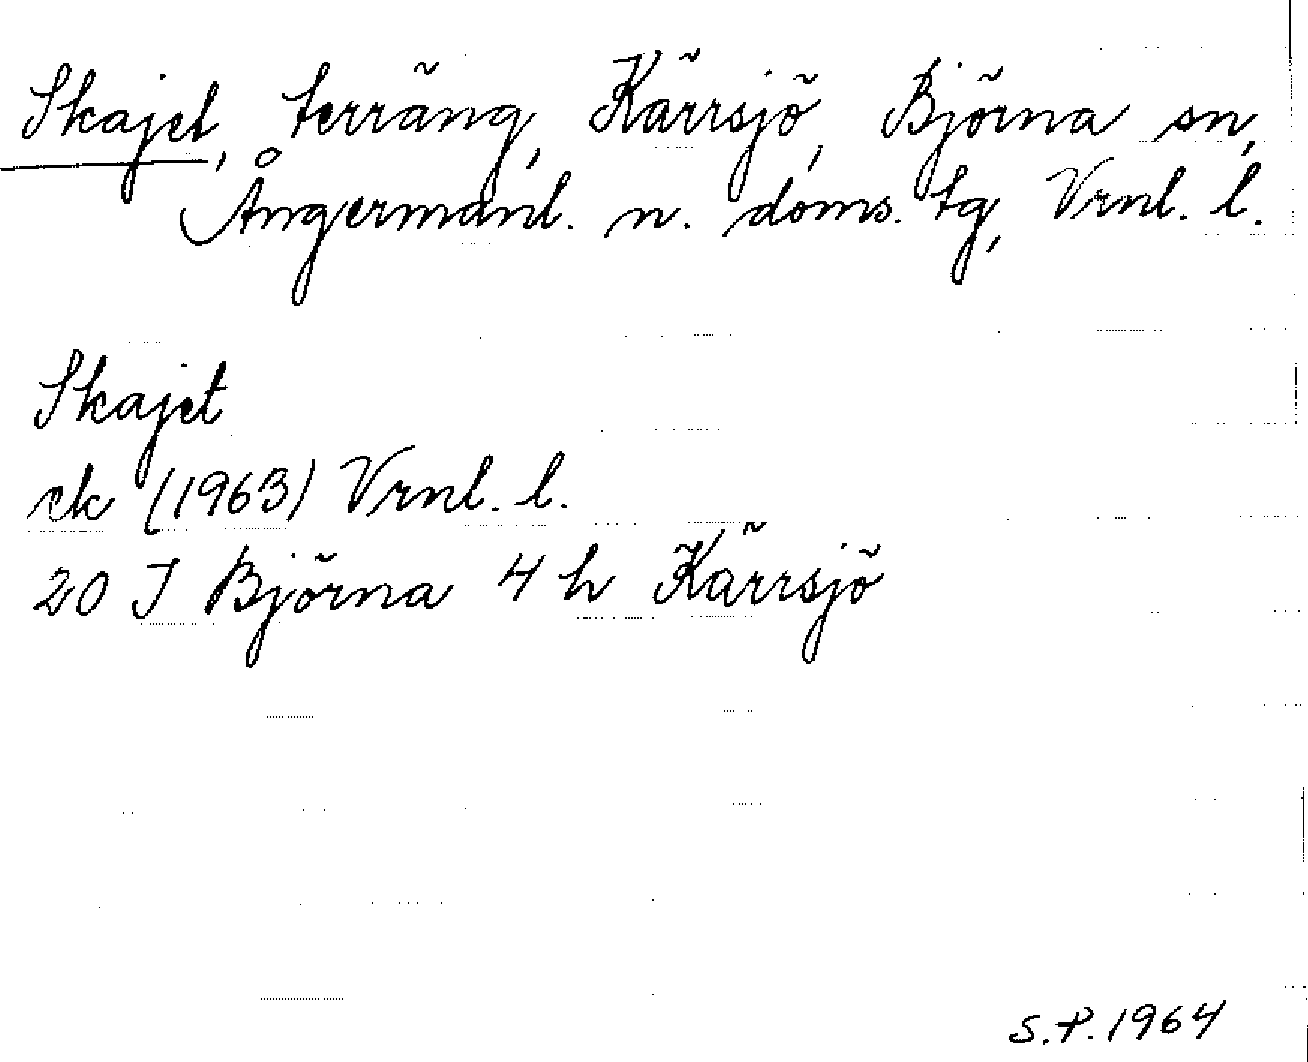 Skajet, terräng, Kärrsjö, Björna sn,
Ångermanl. n. doms. tg, Vrnl. l.
Skajet
ek (1963) Vrnl. l.
20 J Björna 4 h Kärrsjö
S.P. 1964